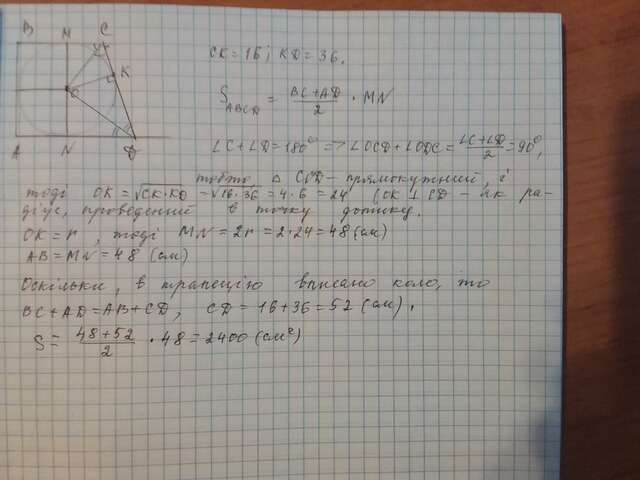 B M C
K
O
A N D
CK = 16; KD = 36.
S_ABCD = (BC + AD)/2 · MN
∠C + ∠D = 180° => ∠OCD + ∠ODC = (∠C + ∠D)/2 = 90°,
тобто △ COD – прямокутний, і
тоді OK = √CK·KD = √16·36 = 4·6 = 24 (OK ⊥ CD – як ра-
діус, проведений в точку дотику.
OK = r, тоді MN = 2r = 2·24 = 48 (см)
AB = MN = 48 (см)
Оскільки, в трапецію вписано коло, то
BC + AD = AB + CD, CD = 16 + 36 = 52 (см).
S = (48 + 52)/2 · 48 = 2400 (см²)